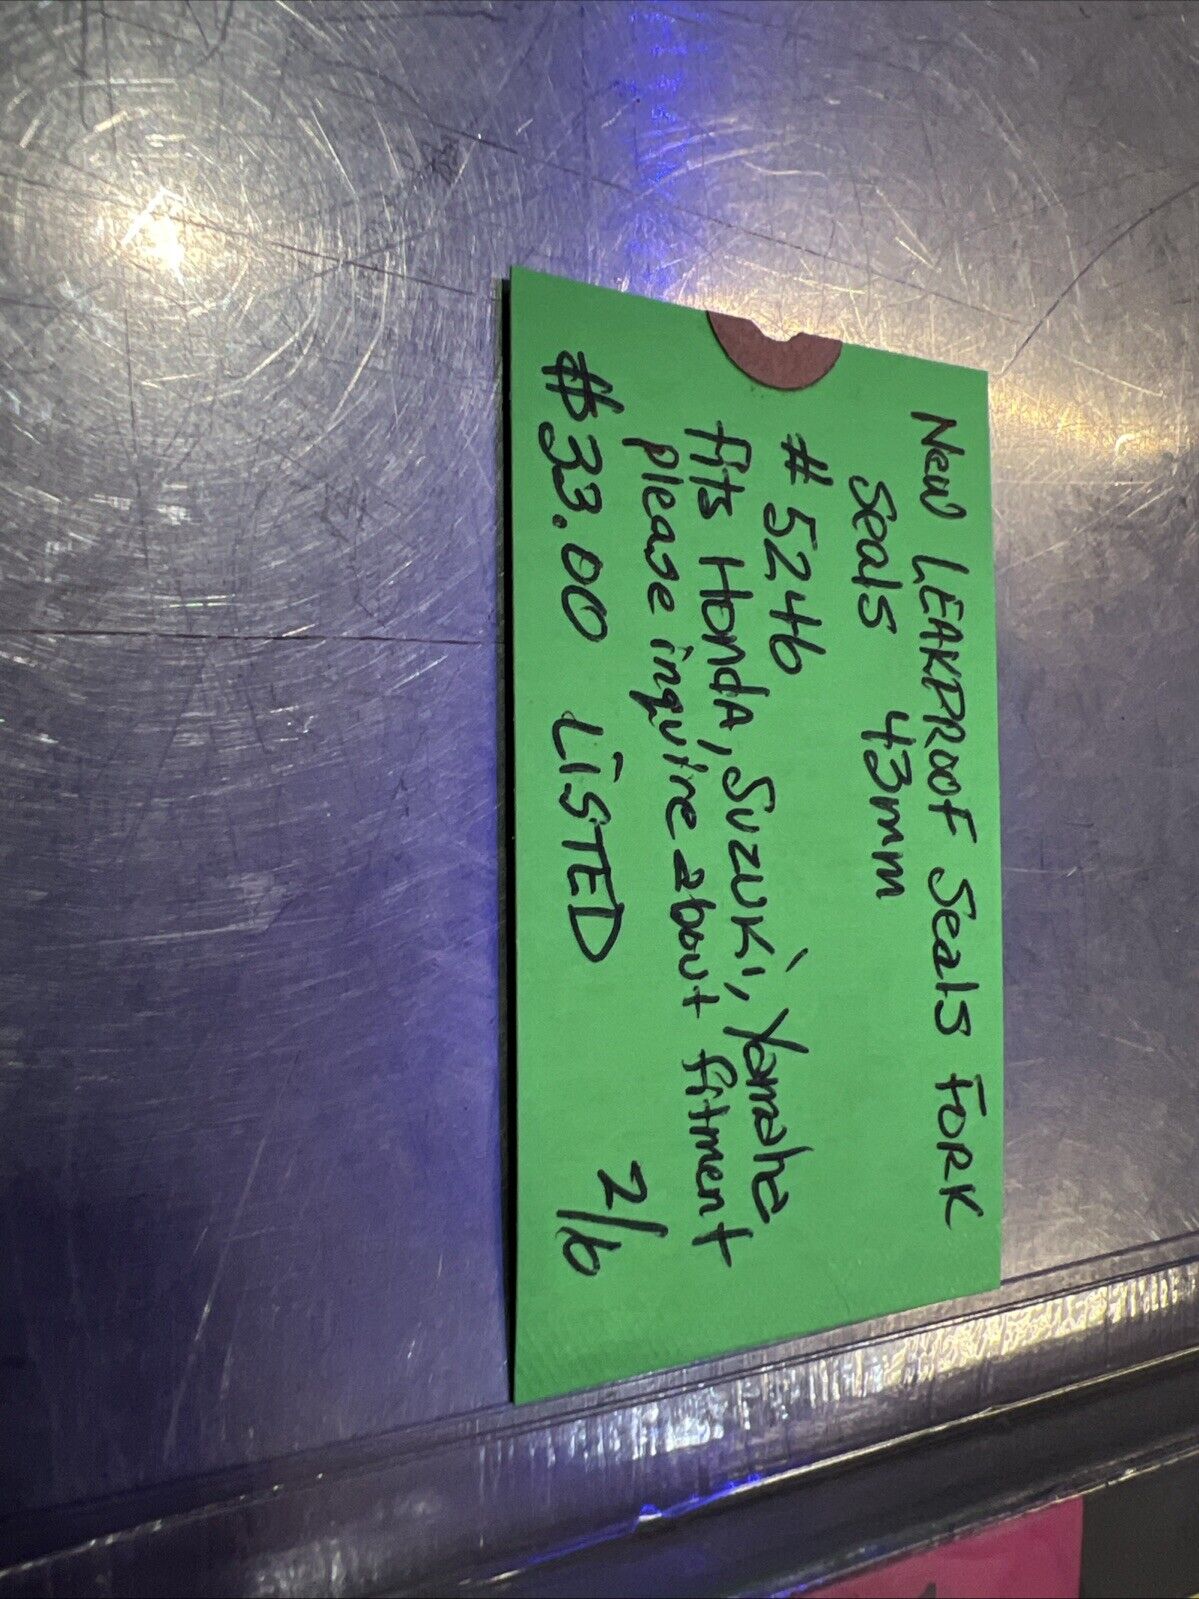 New LEAKPROOF Seals FORK
Seals 43mm
# 5246
fits Honda, Suzuki, Yamaha
please inquire about fitment
$33.00 LiSTED 2/6